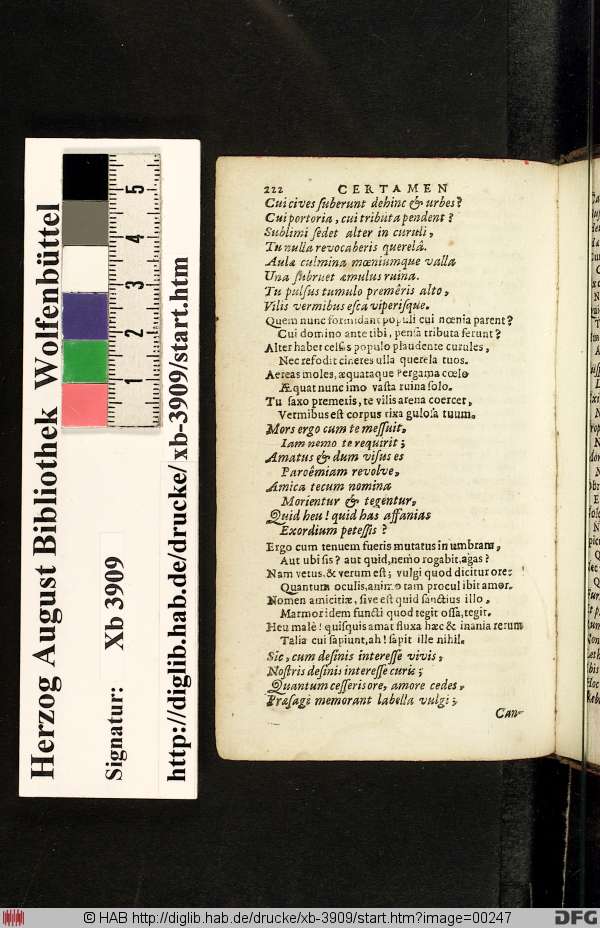 Herzog August Bibliothek Wolfenbüttel
Signatur: Xb 3909
http://diglib.hab.de/drucke/xb-3909/start.htm
1 2 3 4 5
222 CERTAMEN
Cui cives suberunt dehinc & urbes?
Cui portoria, cui tributa pendent?
Sublimi sedet alter in curuli,
Tu nulla revocaberis querelâ.
Aulæ culmina mœniumque valla
Una subruet æmulus ruina.
Tu pulsus tumulo premêris alto,
Vilis vermibus esca viperisque.
Quem nunc formidant populi cui mœnia parent?
Cui domino ante tibi, pensa tributa ferunt?
Alter habet celsas populo plaudente curules,
Nec refodit cineres ulla querela tuos.
Aereas moles, æquataque Pergama cœlo
Æquat nunc imo vasta ruina solo.
Tu saxo premeris, te vilis arena coercet,
Vermibus est corpus rixa gulosa tuum.
Mors ergo cum te messuit,
Iam nemo te requirit;
Amatus & dum visus es
Paroêmiam revolve,
Amica tecum nomina
Morientur & tegentur,
Quid heu! quid has affanias
Exordium petessis?
Ergo cum tenuem fueris mutatus in umbram,
Aut ubi sis? aut quid, nemo rogabit, agas?
Nam vetus, & verum est; vulgi quod dicitur ore:
Quantum oculis, animo tam procul ibit amor.
Nomen amicitiæ, sive est quid sanctius illo,
Marmor idem functi quod tegit ossa, tegit.
Heu malè! quisquis amat fluxa hæc & inania rerum
Talia cui sapiunt, ah! sapit ille nihil.
Sic, cum desinis interesse vivis,
Nostris desinis interesse curis;
Quantum cesseris ore, amore cedes,
Præsagè memorant labella vulgi;
Can-
© HAB http://diglib.hab.de/drucke/xb-3909/start.htm?image=00247
DFG